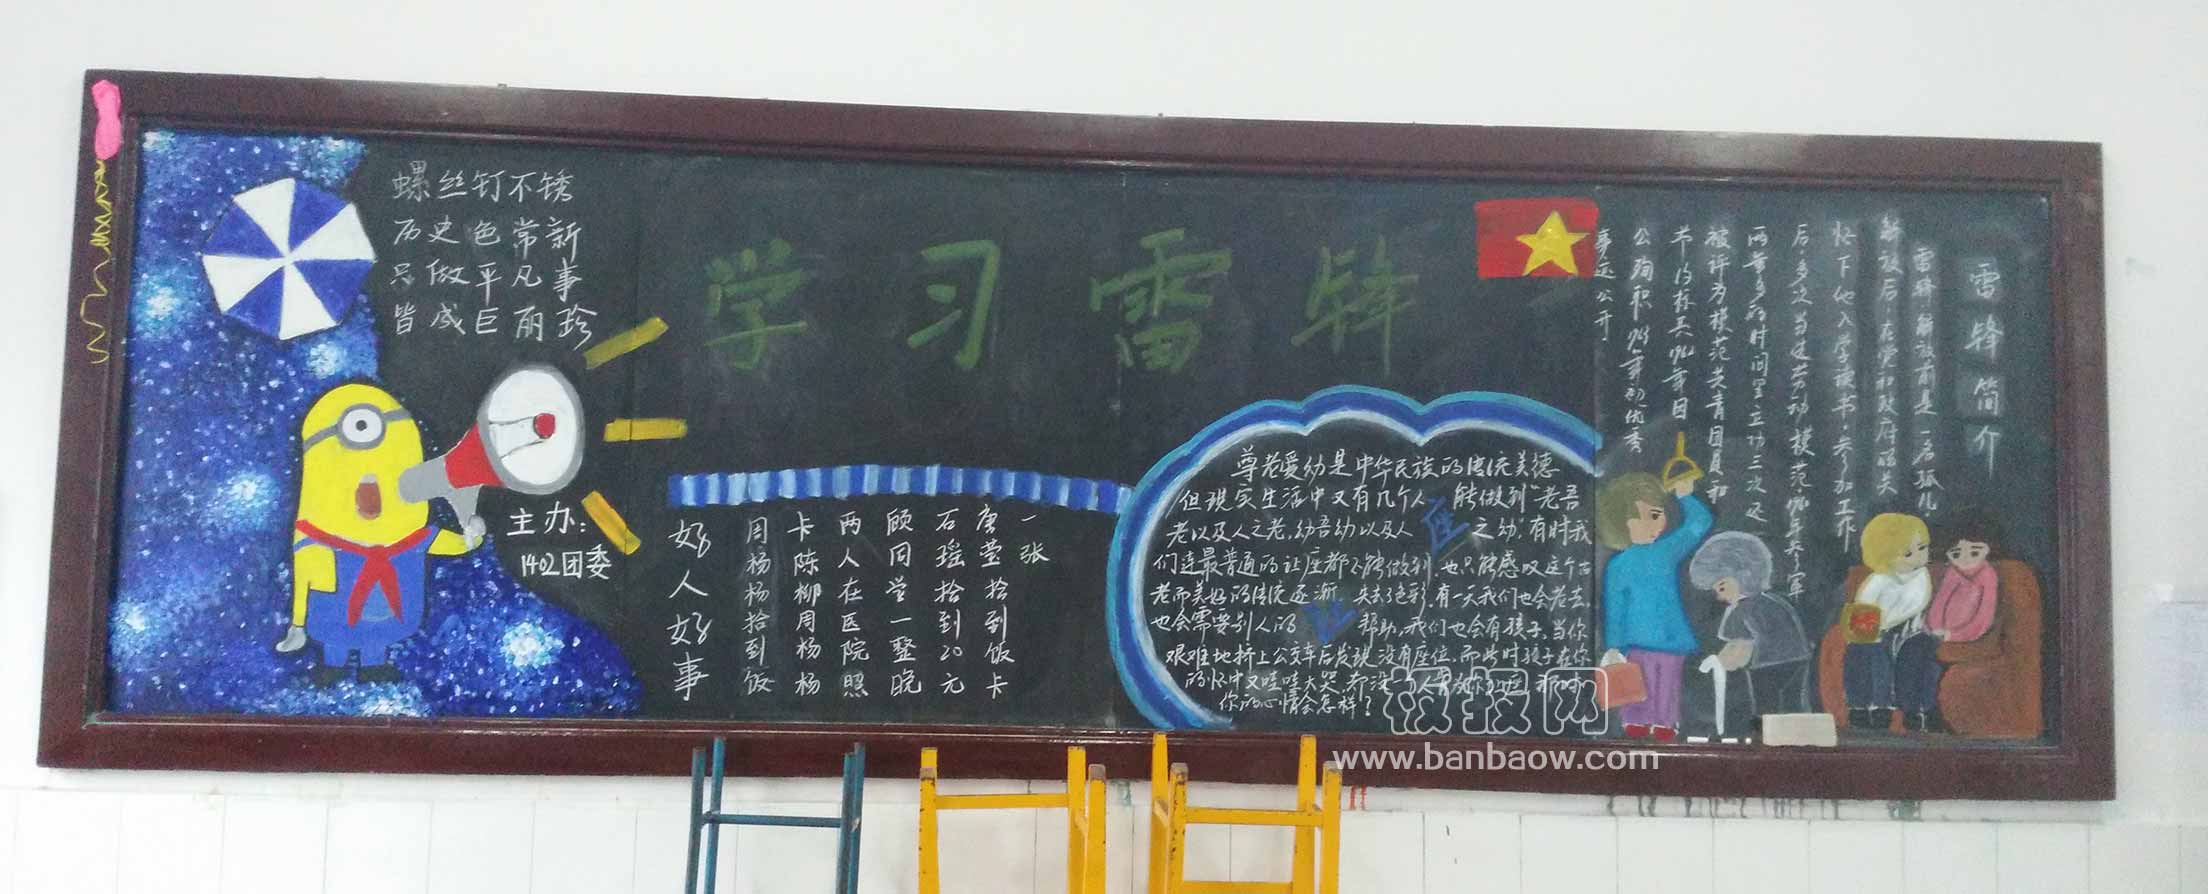 螺丝钉不锈
历史色常新
只做平凡事
皆成巨丽珍
学习雷锋
主办:
1402团委
好人好事
周杨杨拾到饭
卡陈柳周杨杨
两人在医院照
顾同学一整晚
石瑶拾到20元
唐莹拾到饭卡
一张
尊老爱幼是中华民族的传统美德
但现实生活中又有几个人能做到"老吾
老以及人之老,幼吾幼以及人之幼".有时我
们连最普通的让座都不能做到,也只能感叹这个古
老而美好的传统逐渐失去了色彩,有一天我们也会老去,
也会需要别人的帮助,我们也会有孩子,当你
艰难地挤上公交车后发现没有座位,而此时孩子在你
的怀中又哇哇大哭,却没人
你的心情会怎样?
座
让
雷锋简介
雷锋解放前是一名孤儿
解放后,在党和政府的关
怀下他入学读书,参加工作
后,多次当选劳动模范
两年多的时间里立功三次还
被评为模范共青团员和
节约标兵
公殉职
事迹公开
板报网
www.banbaow.com